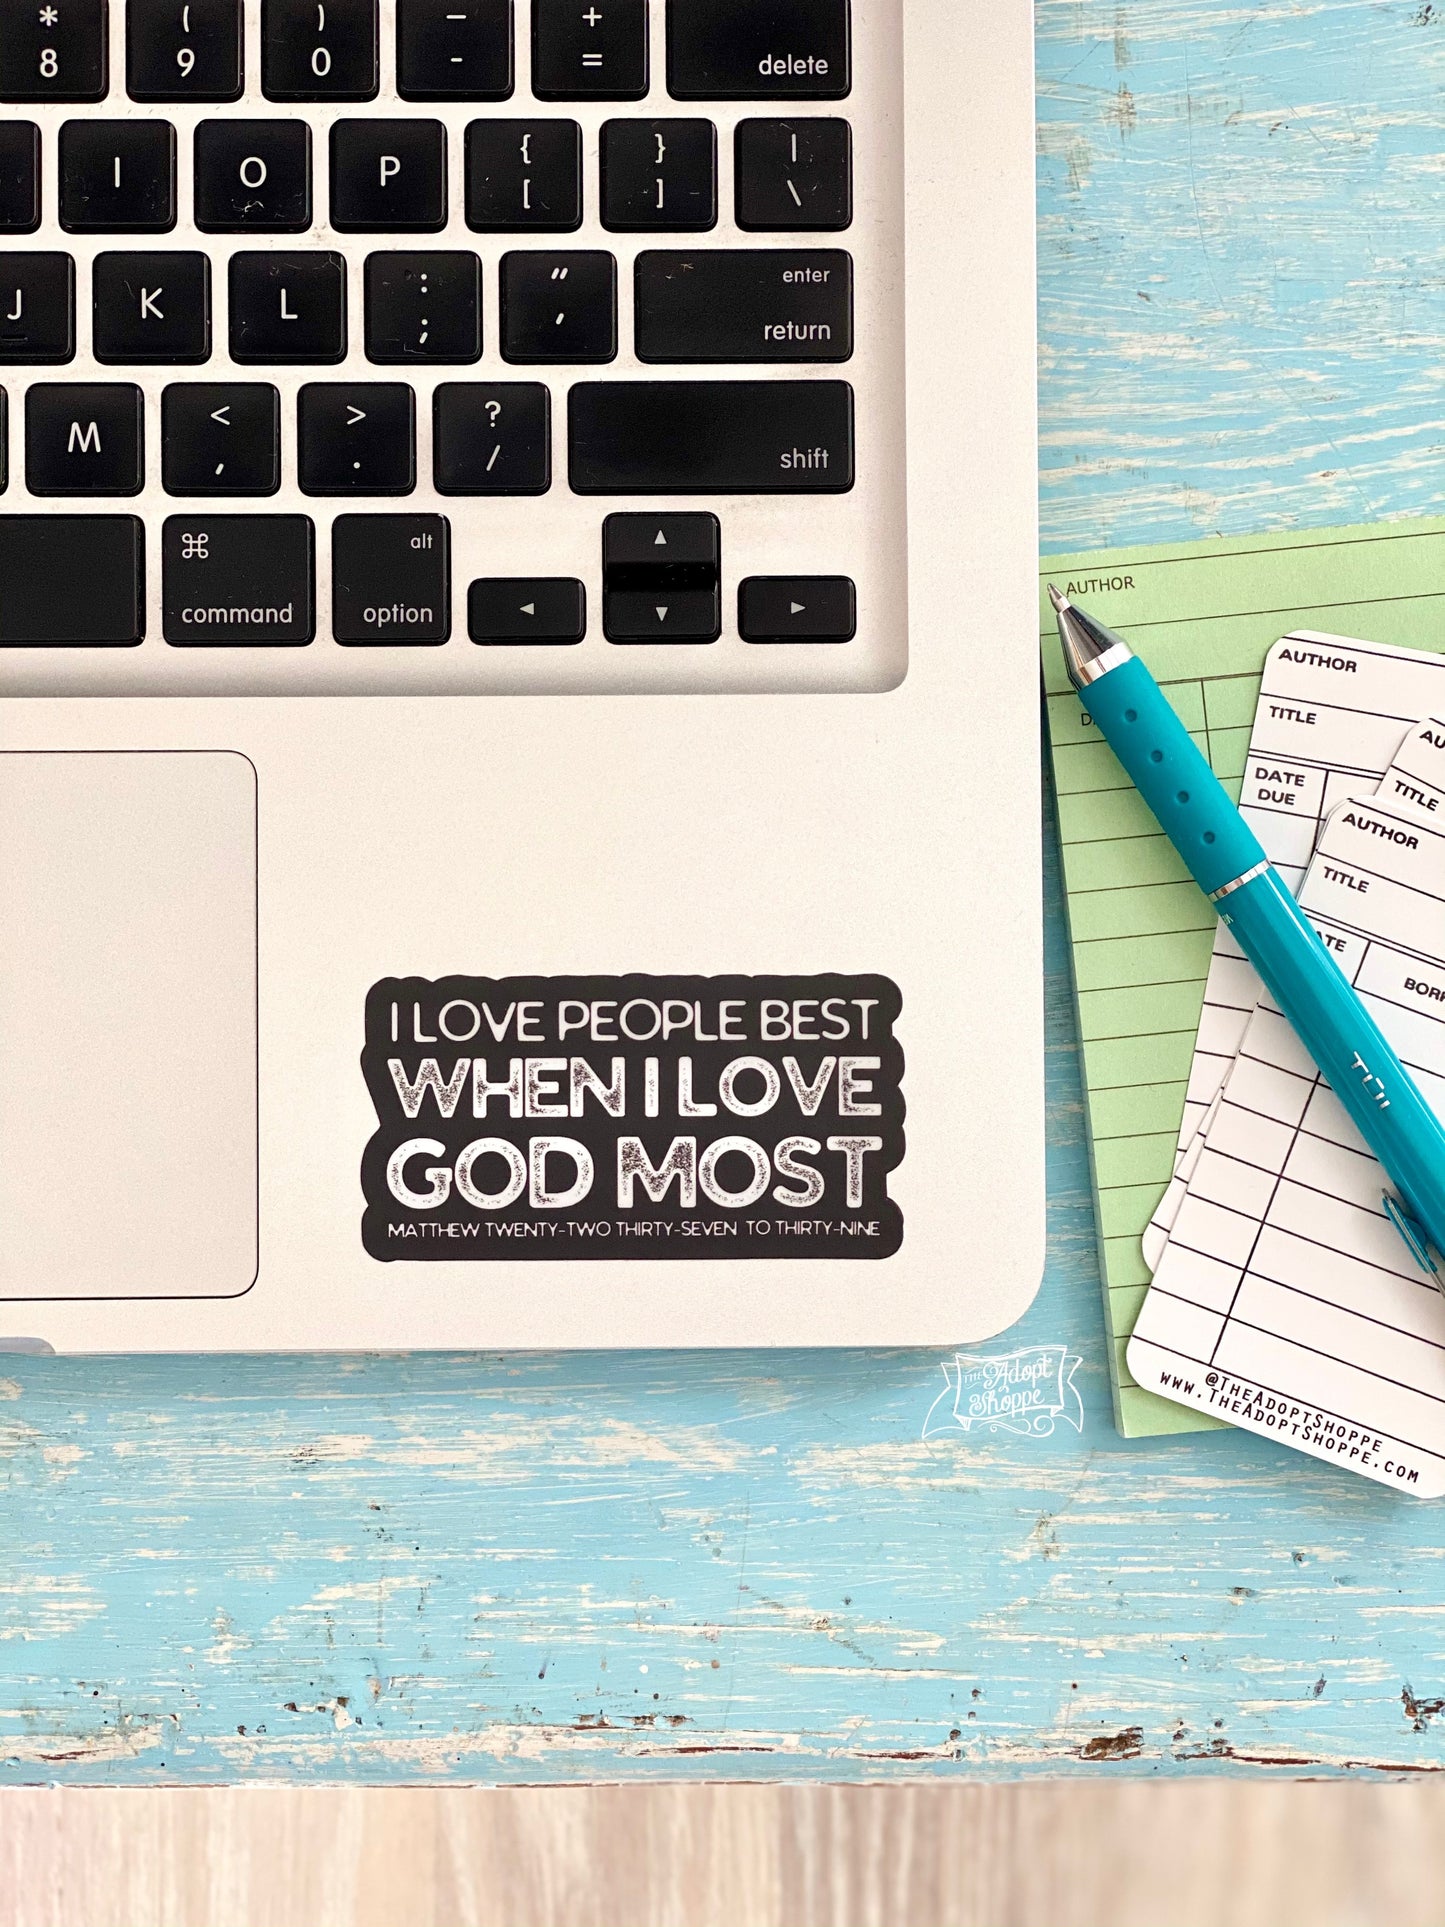 * ( ) – +
8 9 0 - = delete
I O P { } |
[ ] \
J K L : " enter
; ' return
M < > ? shift
, . /
⌘ alt
command option
◀ ▲ ▶
▼
AUTHOR
AUTHOR
TITLE
DATE
DUE
TITLE
AUTHOR
TITLE
I LOVE PEOPLE BEST
WHEN I LOVE
GOD MOST
MATTHEW TWENTY-TWO THIRTY-SEVEN TO THIRTY-NINE
THE Adopt
Shoppe
@THEADOPTSHOPPE
WWW.THEADOPTSHOPPE.COM
TUL